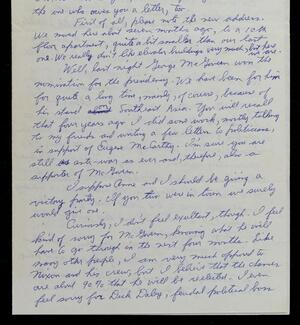 the one who owes you a letter, too.
First of all, please note the new address.
We moved here about seven months ago, to a 10th
floor apartment, quite a bit smaller than our last
one. We really don't like elevator buildings very much, but here we are.
Well, last night George McGovern won the
nomination for the presidency. We had been for him
for quite a long time, mainly, of course, because of
his stand Southeast Asia. You will recall
that four years ago I did some work, mostly talking
to my friends and writing a few letters to politicians,
in support of Eugene McCarthy. I'm sure you are
still as anti-war as ever and, therefore, also a
supporter of McGovern.
I suppose Anne and I should be giving a
victory party. If you two were in town we surely
would give one.
Curiously, I don't feel exultant, though. I feel
kind of sorry for McGovern, knowing what he will
have to go through in the next four months. Like
many other people, I am very much opposed to
Nixon and his crew, but I believe that the chances
are about 90% that he will be reelected. I even
feel sorry for Dick Daley, feudal political boss